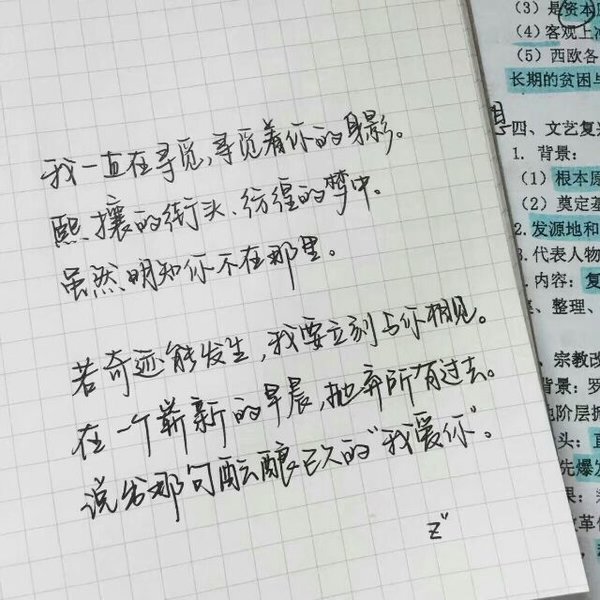 我一直在寻觅，寻觅着你的身影。
熙攘的街头、彷徨的梦中。
虽然明知你不在那里。
若奇迹能发生，我要立刻与你相见。
在一个崭新的早晨，抛弃所有过去。
说出那句酝酿已久的“我爱你”。
z"
（3）是资本
（4）客观上
（5）西欧各
长期的贫困与
四、文艺复兴
1. 背景：
（1）根本原
（2）奠定基
2.发源地和
3.代表人物
内容：复
、整理、
、宗教改
背景：罗
地阶层拥
头：直
先爆发
果：
改革